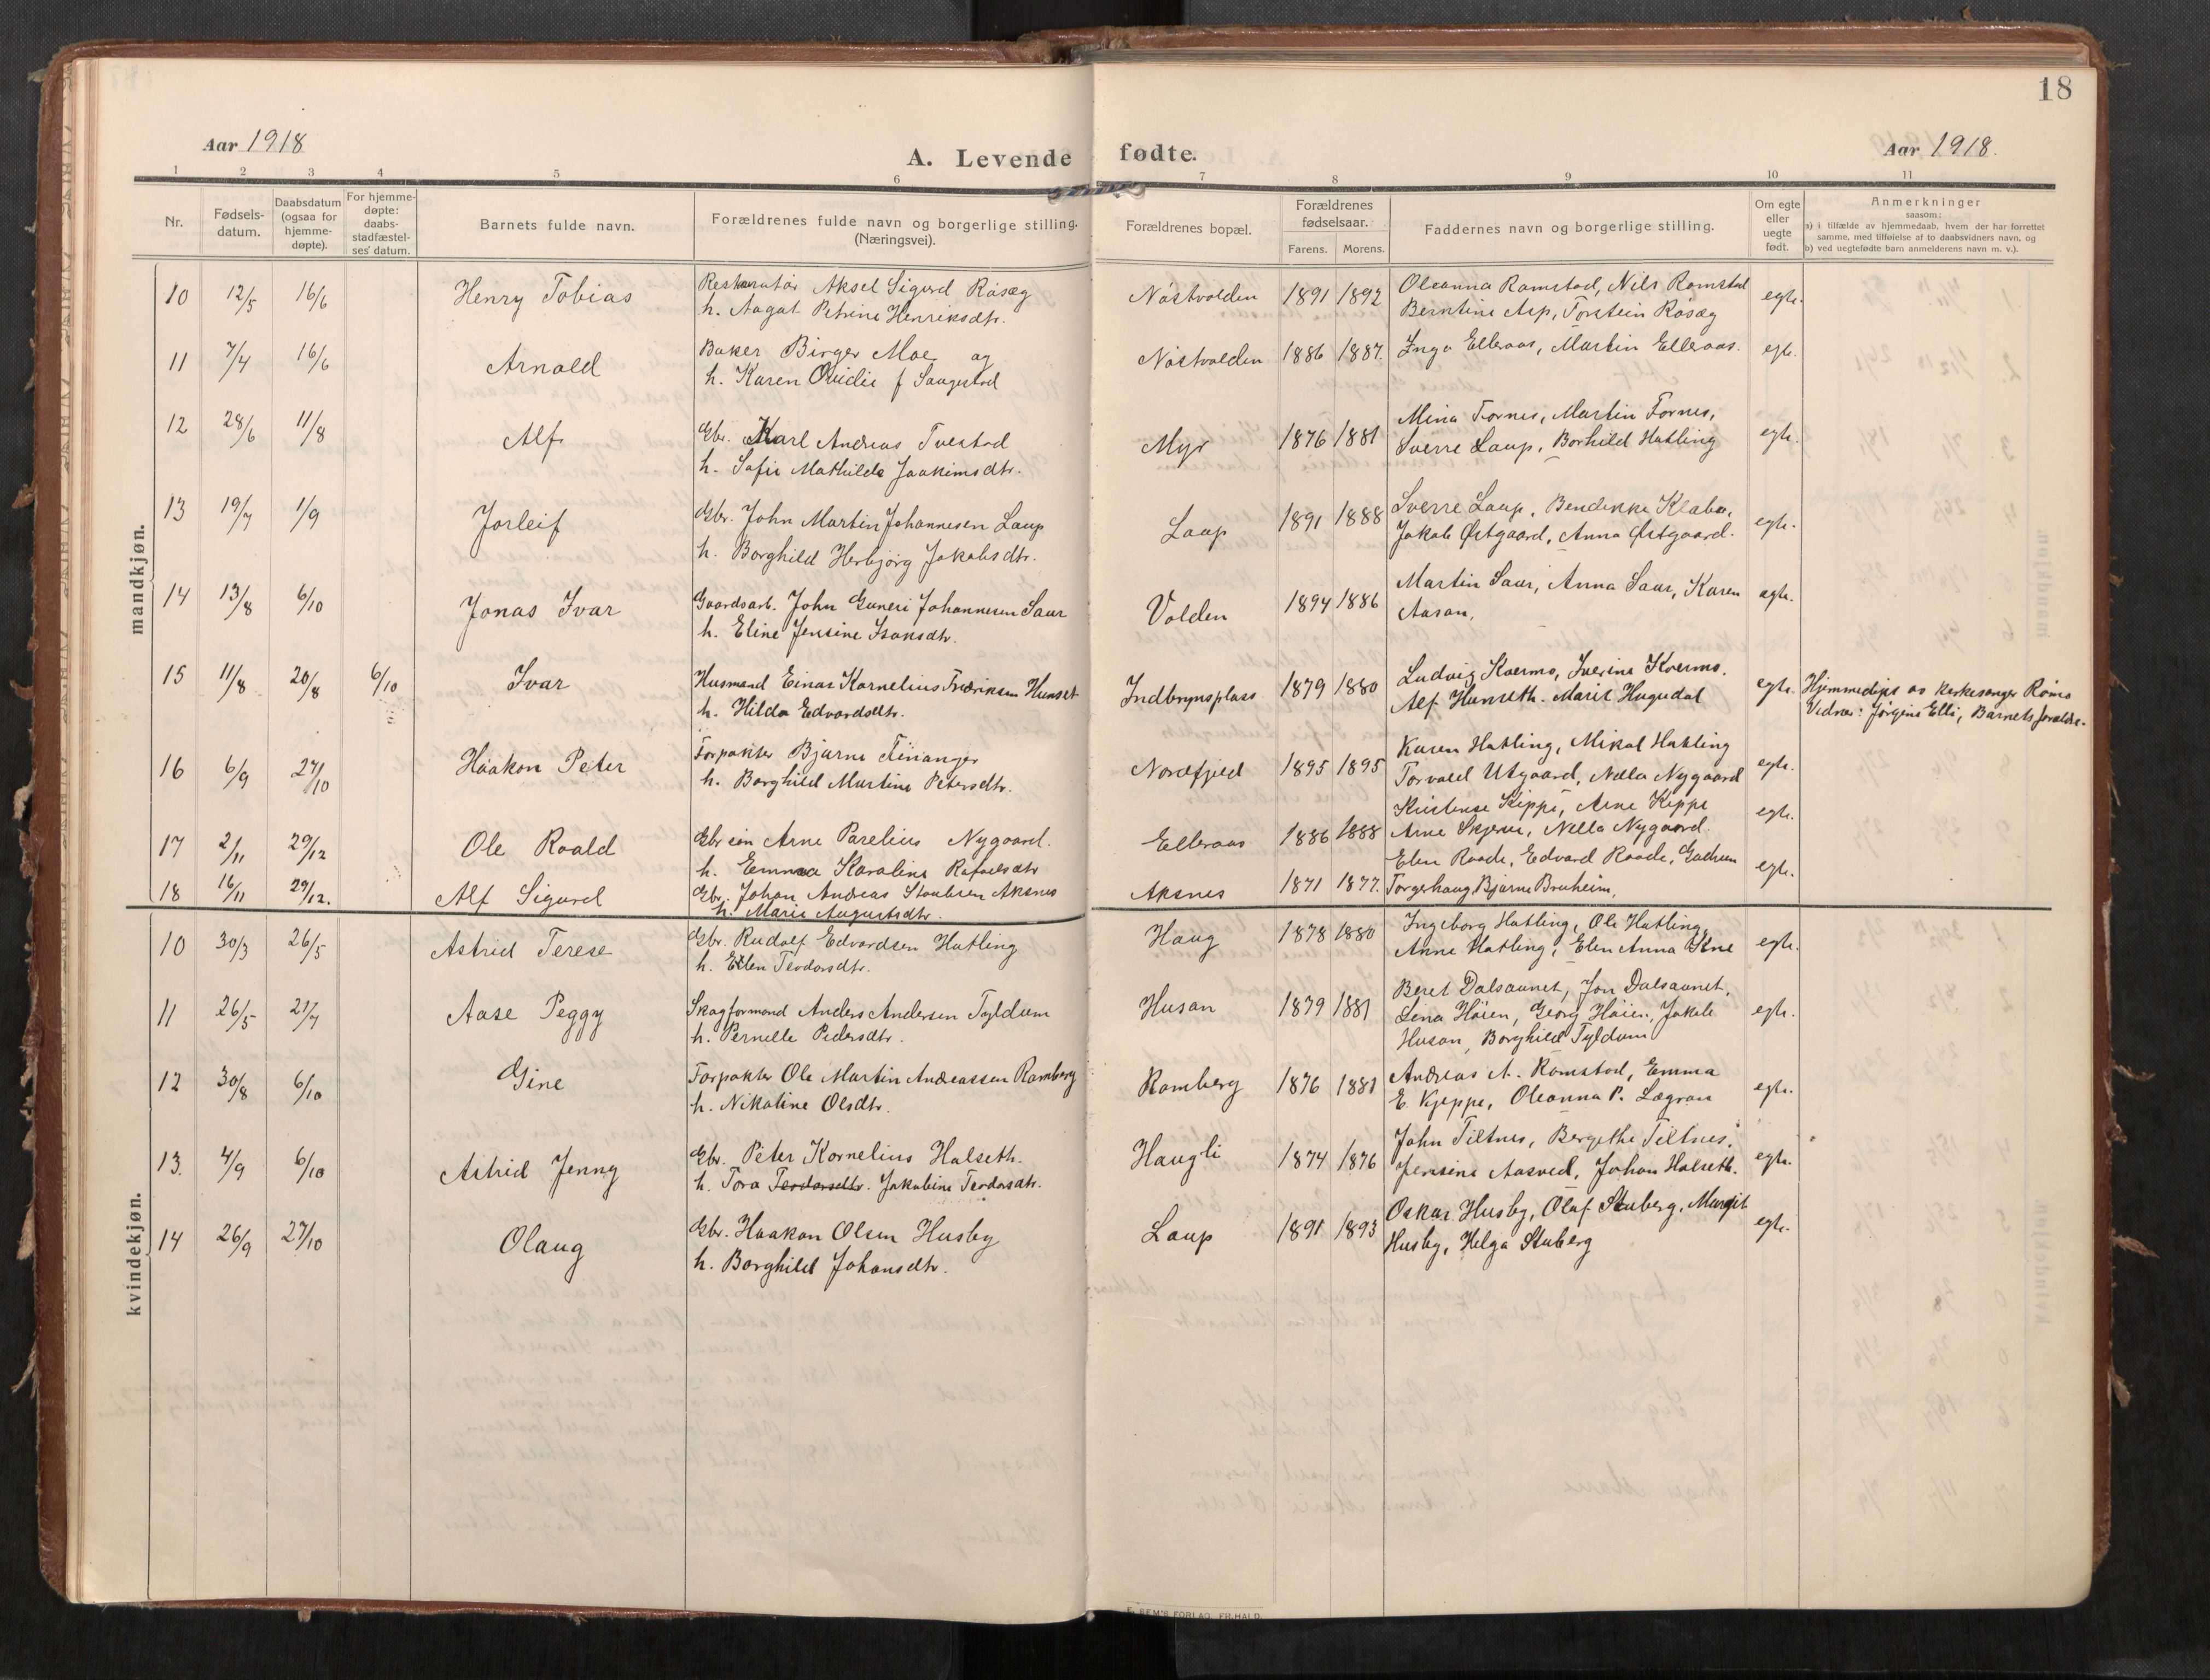 18
Aar 1918
A. Levende fødte.
Aar 1918.
1 2 3 4 5 6 7 8 9 10 11
Nr.
Fødsels-
datum.
Daabsdatum
(ogsaa for
hjemme-
døpte).
For hjemme-
døpte:
daabs-
stadfæstel-
ses' datum.
Barnets fulde navn.
Forældrenes fulde navn og borgerlige stilling.
(Næringsvei).
Forældrenes bopæl.
Forældrenes
fødselsaar.
Farens. Morens.
Faddernes navn og borgerlige stilling.
Om egte
eller
uegte
født.
Anmerkninger
saasom:
a) i tilfælde av hjemmedaab, hvem der har forrettet
samme, med tilføielse af to daabsvidners navn, og
b) ved uegtefødte barn anmelderens navn m. v.).
mandkjøn.
10 12/5 16/6 Henry Tobias Aksel Sigurd Råsæg Nåstvolden 1891 1892 Oleanna Ramstad, Nils Ramstad egte.
h. Aagot Petrine Henriksdtr. Berntine Asp, Torstein Råsæg
11 7/4 16/6 Arnold Baker Birger Moe og Nåstvolden 1886 1887. Inga Elleraas, Martin Elleraas. egte.
h. Karen Ovidie f Saugestad
12 28/6 11/8 Alf Gbr. Karl Andreas Tvestad Myr 1876 1881 Mina Fornes, Martin Fornes, egte.
h. Sofie Mathilde Joakimsdtr. Sverre Laup, Borhild Hatling
13 19/7 1/9 Jorleif Gbr. John Martin Johannesen Laup Laup 1891 1888 Sverre Laup, Bendikke Klabo, egte.
h. Borghild Herbjørg Jakobsdtr. Jakob Østgaard, Anna Østgaard.
14 13/8 6/10 Jonas Ivar Gaardsarb. John Guneri Johannesen Saur Volden 1894 1886 Martin Saur, Anna Saur, Karen egte.
h. Eline Jensine Isaksdtr. Aasan,
15 11/8 20/8 6/10 Ivar Husmand Einar Kornelius Fredriksen Hunset Indbrynsplass 1879 1880 Ludvig Kvermo, Iverine Kvermo. egte. Hjemmedøpt av kirkesanger Rømo
h. Hilda Edvardsdtr. Alf Hunseth. Marit Hugudal Vidner: Jørgine Elli, Barnets forældre.
16 6/9 27/10 Haakon Peter Forpakter Bjarne Finanger Nordfjeld 1895 1895 Karen Hatling, Mikal Hatling egte.
h. Borghild Martine Petersdtr. Torvald Utgaard, Nella Nygaard
17 2/11 29/12 Ole Roald Gbr søn Arne Parelius Nygaard. Elleraas 1886 1888 Kristense Kippe, Arne Kippe egte.
h. Emma Karoline Rafaelsdtr Arne Skjerve, Nella Nygaard.
18 16/11 29/12. Alf Sigurd Gbr. Johan Andreas Staulsen Aksnes Aksnes 1871 1877. Elen Raade, Edvard Raade, Gudrun egte.
h. Marie Augustsdtr. Torgerhaug, Bjarne Bruheim.
kvindekjøn.
10 30/3 26/5 Astrid Terese Gbr. Rudolf Edvardsen Hatling Haug 1878 1880 Ingeborg Hatling, Ole Hatling, egte.
h. Ellen Teodorsdtr. Anne Hatling, Elen Anna
11 26/5 21/7 Aase Peggy Skogformand Anders Andersen Tyldum Husan 1879 1881 Beret Dalsaunet, Jon Dalsaunet. egte.
h. Pernille Pedersdtr. Lina Høien, Georg Høien, Jakob
Husan, Borghild Tyldum
12 30/8 6/10 Gine Forpakter Ole Martin Andreassen Ramberg Ramberg 1876 1881 Andreas A. Romstad, Emma egte.
h. Nikoline Olsdtr. E. Kjeppe, Oleanna P. Lægran
13. 4/9 6/10 Astrid Jenny Gbr. Peter Kornelius Halseth. Haugli 1874 1876 John Tiltnes, Bergithe Tiltnes. egte.
h. Tora Teodorsdtr. Jakobine Teodorsdtr. Jensine Aasved, Johan Halseth.
14 26/9 27/10 Olaug Gbr. Haakon Olsen Husby Laup 1891 1893 Oskar Husby, Olaf Stuberg, Margit egte.
h. Borghild Johansdtr. Husby, Helga Stuberg
E. SEM'S FORLAG, FR.HALD.